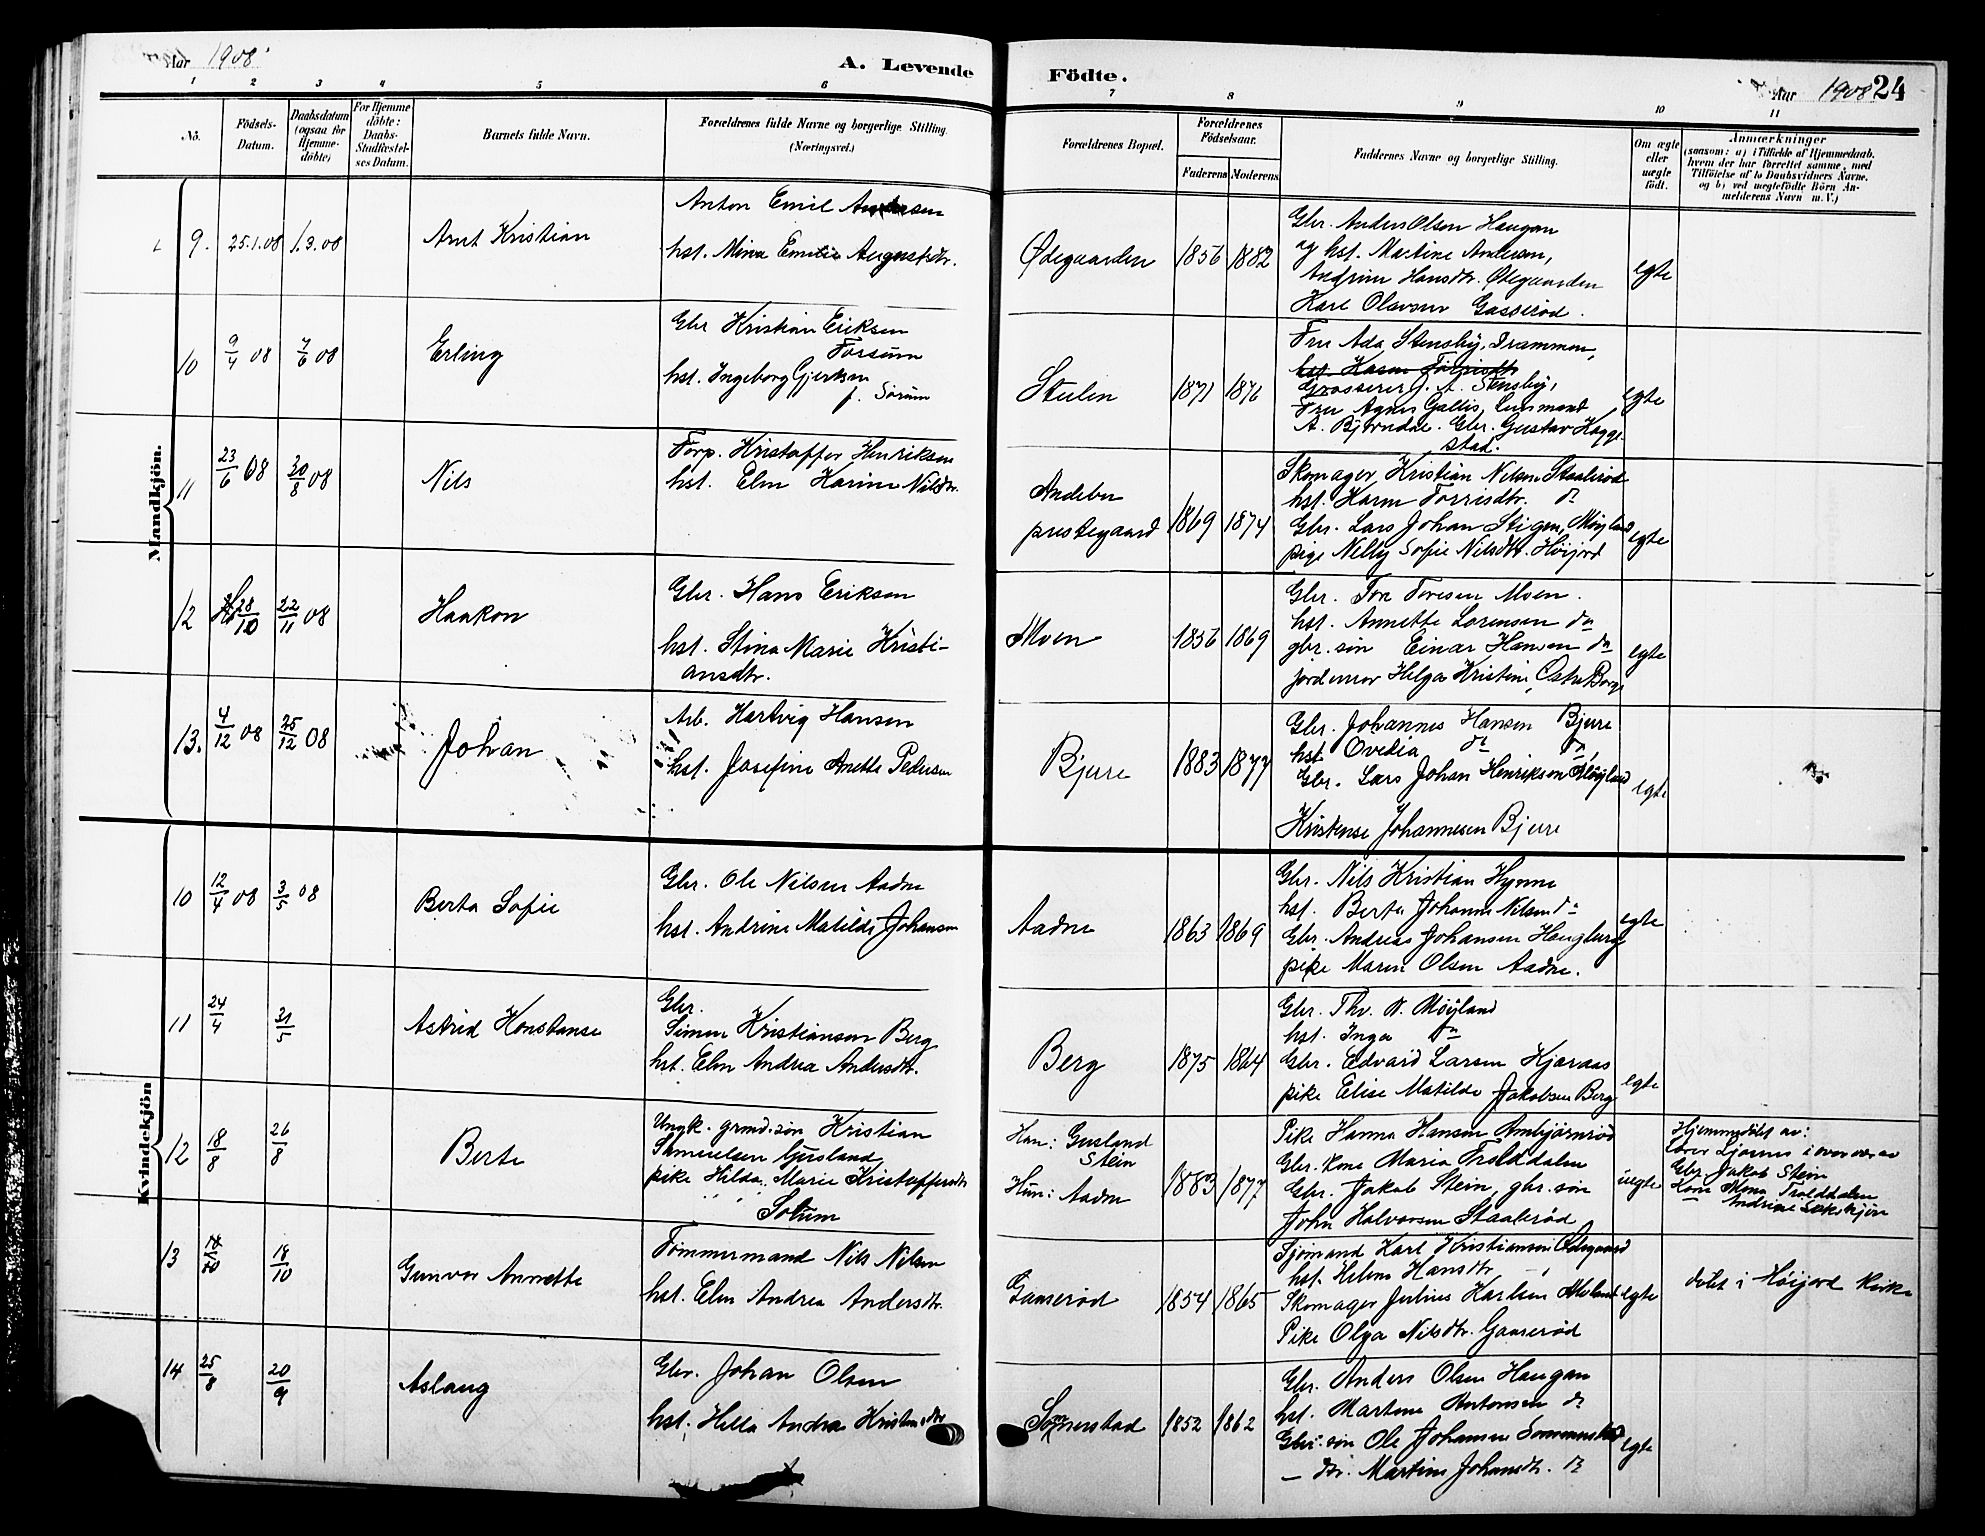 Aar 1908
A. Levende
Födte.
Aar 1908 24
1 2 3 4 5 6 7 8 9 10 11
No.
Födsels-Datum.
Daabsdatum (ogsaa for Hjemme-döbte)
For Hjemme döbte: Daabs-Stadfæstel-ses Datum.
Barnets fulde Navn.
Forældrenes fulde Navne og borgerlige Stilling.
(Næringsvei.)
Forældrenes Bopæl.
Forældrenes Födselsaar.
Faderens Moderens
Faddernes Navne og borgerlige Stilling.
Om ægte eller uægte födt.
Anmærkninger
(saasom: a) i Tilfælde af Hjemmedaab.
hvem der har forrettet samme, med
Tilföielse af to Daabsvidners Navne.
og b) ved uægtefödte Börn An-
melderens Navn m. V.)
Mandkjön.
9. 25.1.08 1.3.08 Arnt Kristian
Anton Emil Andersen
hst. Mina Emilie Augustdtr.
Ødegaarden 1856 1882
Gbr. Anders Olsen Haugan
og hst. Martine Andersen,
Andrine Hansdtr. Ødegaarden
Karl Olavsen Gasserød.
egte
10 9/4 08 7/6 08 Erling
Gbr Kristian Eriksen
Forsum
hst. Ingeborg Gjertsen
f. Sørum
Stulen 1871 1876
Fru Ada Stensby, Drammen,
Grosserer J. A. Stensby,
Fru Agnes Gallis, Lensmand
A. Bjørndal. Gbr. Gustav Hogge-
stad.
egte
11 23/6 08 30/8 08 Nils
Forp. Kristoffer Henriksen
hst. Elen Karine Nilsdtr.
Andebu
prestegaard 1869 1874
Skomager Kristian Nilsen Staalerød
hst. Karen Torrisdtr. do
Gbr. Lars Johan Stigen, Møyland
pige Nelly Sofie Nilsdtr. Høijord
egte
12 28/10 22/11 08 Haakon
Gbr. Hans Eriksen
hst. Stina Marie Kristi-
ansdtr.
Moen 1856 1869
Gbr. Tor Toresen Moen.
hst. Annette Lorensen do
gbr. søn Einar Hansen do
jordemor Helga Kristine, Østre Borge
egte
13. 4/12 08 25/12 08 Johan
Arb. Hartvig Hansen
hst. Josefine Anette Pedersen
Bjure 1883 1877
Gbr. Johannes Hansen Bjure
hst Ovedia do do
Gbr. Lars Johan Henriksen Møyland
Kristense Johannesen Bjure
egte
Kvindekjön
10 12/4 08 3/5 08 Berta Sofie
Gbr. Ole Nilsen Aadne
hst. Andrine Matilde Johansen
Aadne 1863 1869
Gbr. Nils Kristian Hynne
hst. Berta Johanne Nilsen do
Gbr. Andreas Johansen Haugberg
pike Maren Olsen Aadne.
egte
11 24/4 31/5 Astrid Konstanse
Gbr.
Simen Kristiansen Berg
hst. Elen Andrea Andersdtr.
Berg 1875 1864
Gbr. Thv. A. Møyland
hst. Inga do
Gbr. Edvard Larsen Kjæraas
pike Elise Matilde Jakobsen Berg
egte
12 18/8 26/8 Berte
Ungk. grmd.søn Kristian
Samuelsen Gusland
pike Hilda Marie Kristoffersdtr
Solum
Han: Gusland
Stein
Hun: Aadne 1883 1877
Pike Hanna Hansen Ambjørnrød
Gbr. kone Maria Trolddalen
Gbr. Jakob Stein, gbr. søn
John Halvorsen Staalerød
uegte
Hjemmedøbt av:
lærer Ljosnes i overvær av
Gbr. Jakob Stein
Kone Mona Trolddalen
13 18/10 Gunvor Annette
Tømmermand Nils Nilsen
hst. Elen Andrea Andersdtr.
Gaaserød 1854 1865
Sjømand Karl Kristiansen Ødegaard
hst. Helene Hansdtr
Skomager Julius Karlsen Møland
Pike Olga Nilsdtr. Gaaserød
egte
døbt i Høijord kirke
14 25/8 20/9 Aslaug
Gbr. Johan Olsen
hst. Hella Andrea Kristensdtr
Sommerstad 1852 1862
Gbr. Anders Olsen Haugan
hst. Martene Antonsen do
Gbr. søn Ole Johansen Sommerstad
— dtr. Martine Johansdtr. do
egte